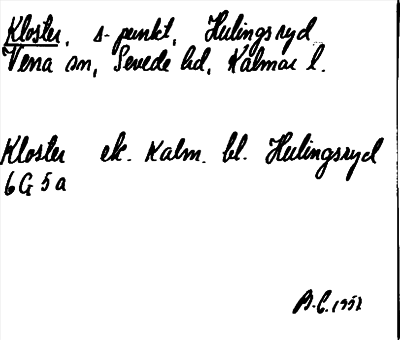 Kloster, s-punkt, Hulingsryd
Vena sn, Sevede hd, Kalmar l.
Kloster ek. Kalm. bl. Hulingsryd
6G 5a
B.C. 1958